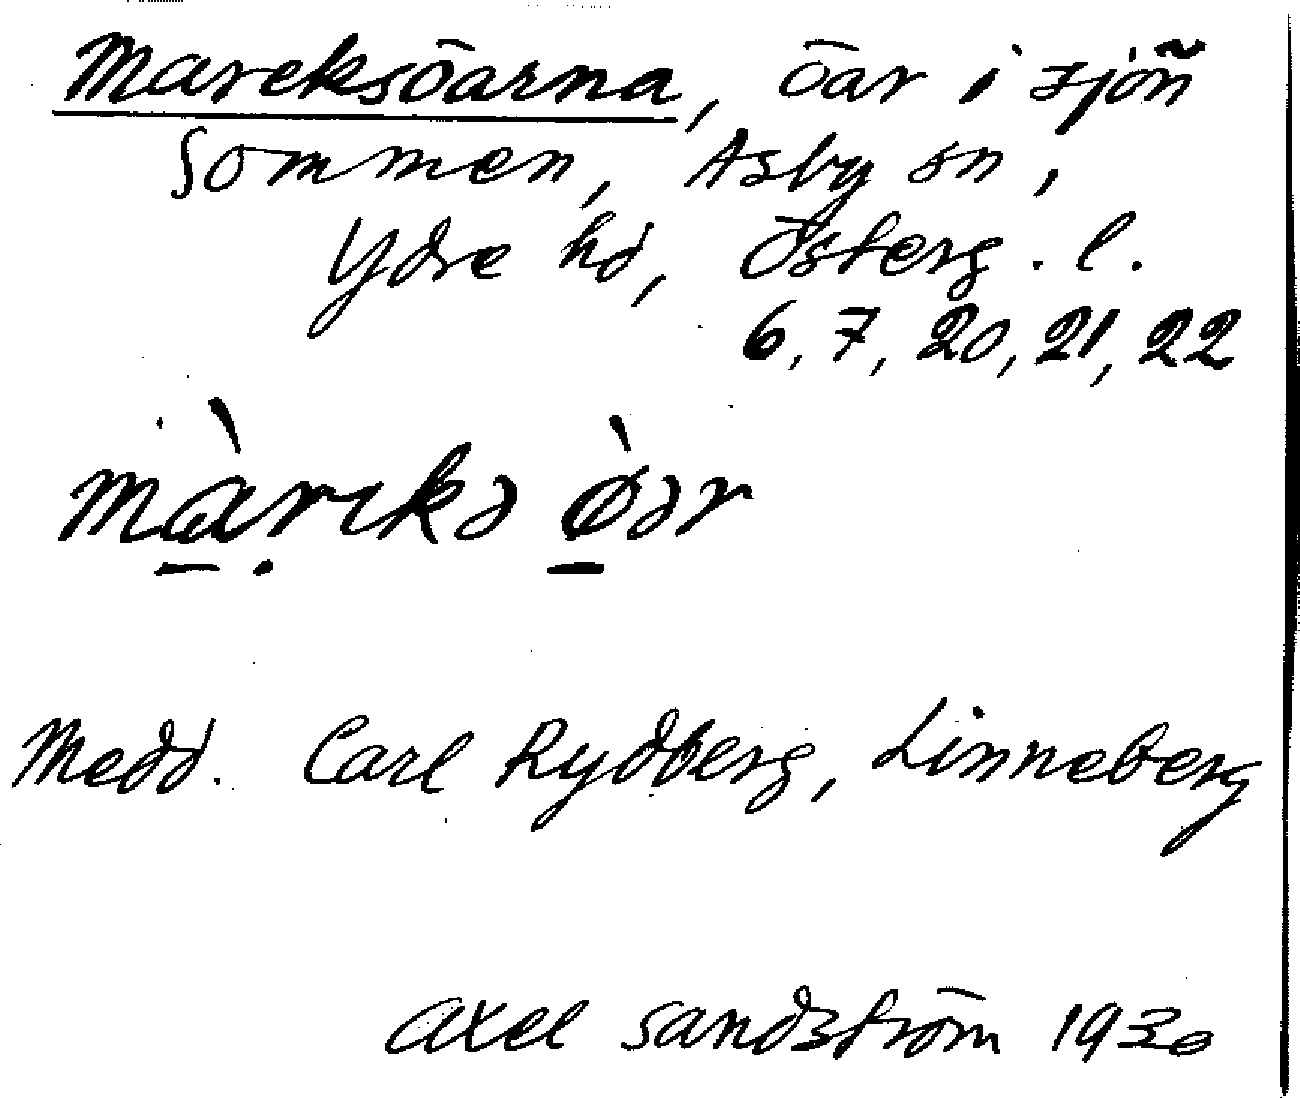 Mareksöarna, öar i sjön
Sommen, Asby sn,
Ydre hd, Österg. l.
6, 7, 20, 21, 22
màrɩkə ø̀ər
Medd. Carl Rydberg, Linneberg
Axel Sandström 1930